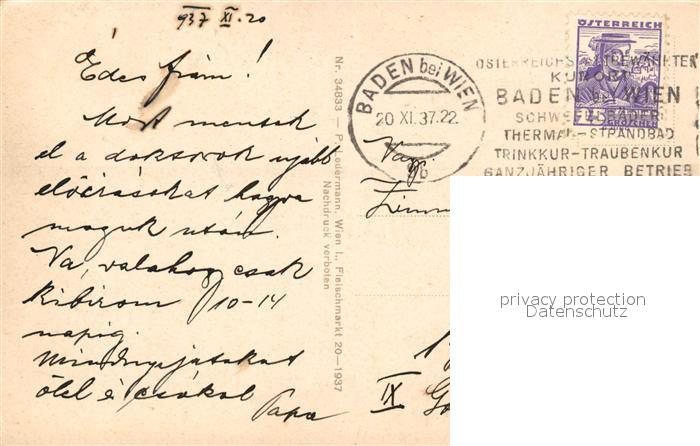 937 XI. 20
Édes fiam!
Most mentek
el a doktorok ujabb
előirásokat hagyva
maguk után.
Na, valahogy csak
kibirom 10-14
napig.
Mindnyájatokat
ölel és csókol
Papa
Nr. 34833 — P. Ledermann, Wien I., Fleischmarkt 20—1937
Nachdruck verboten
BADEN bei WIEN
20 XI. 37. 22
9b
ÖSTERREICH
GROSCHEN
ÖSTERREICHS ALTBEWÄHRTER
KURORT
BADEN bei WIEN
SCHWEFELBÄDER
THERMAL-STRANDBAD
TRINKKUR-TRAUBENKUR
GANZJÄHRIGER BETRIEB
Nagy
IX
privacy protection
Datenschutz